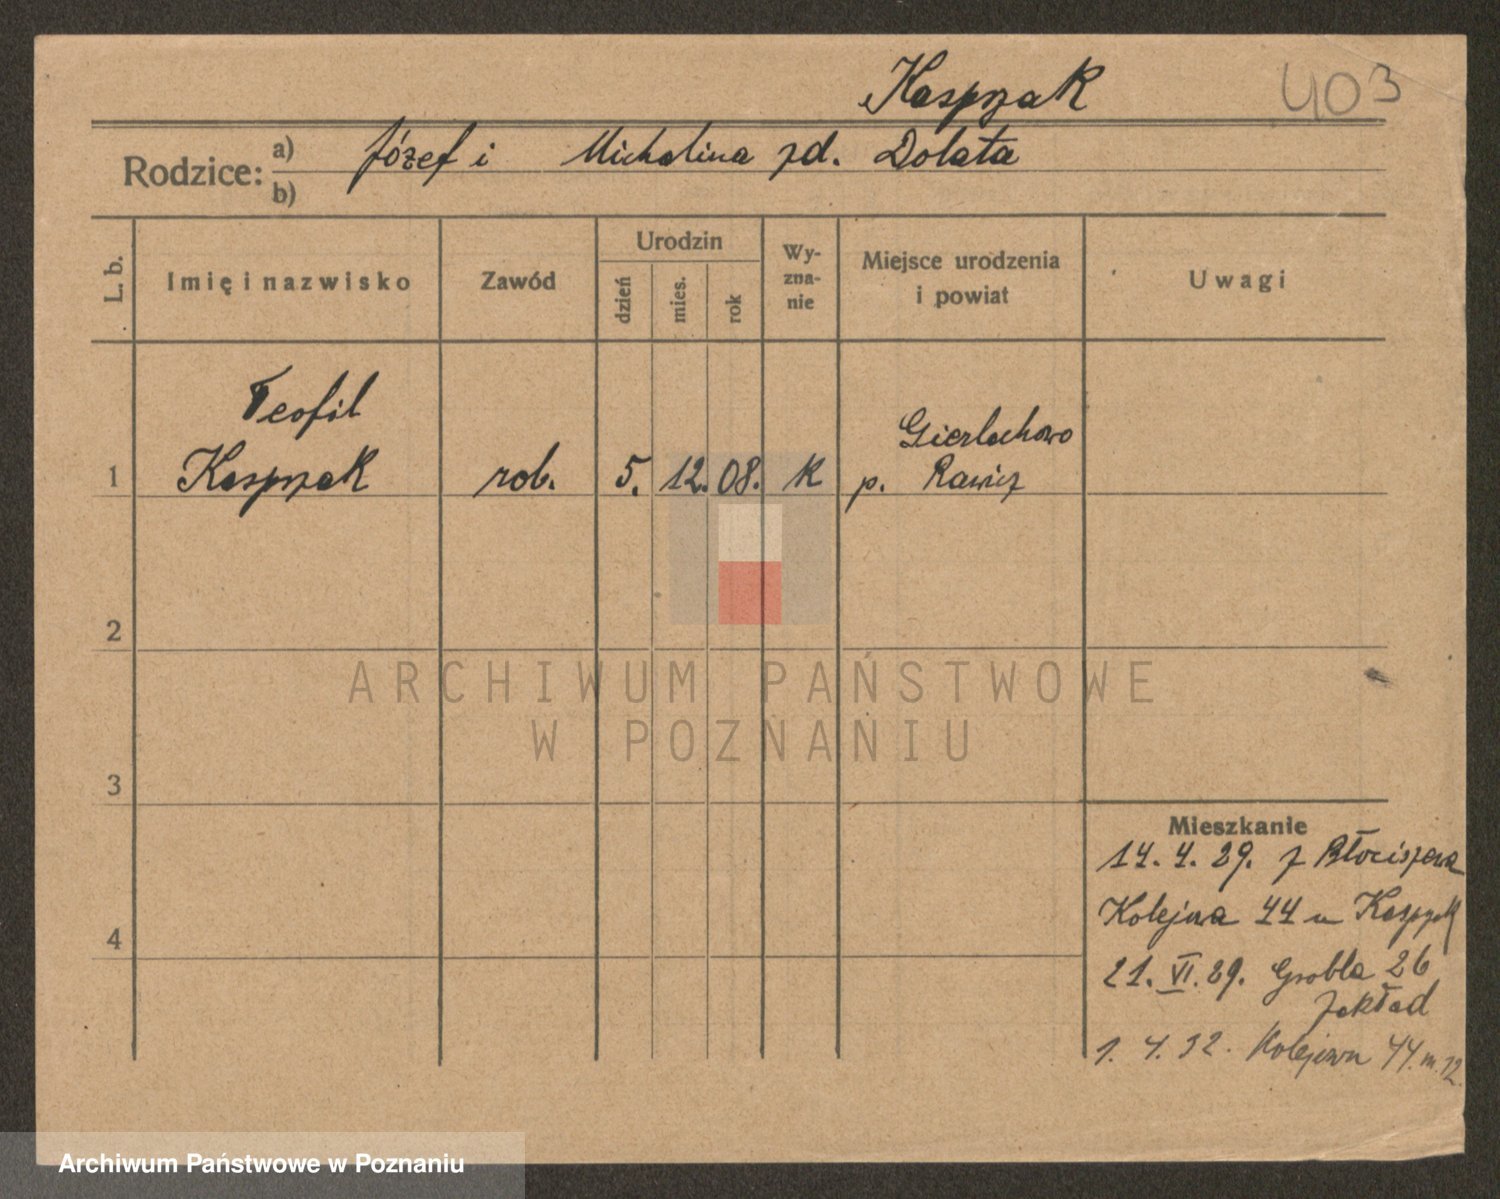 Kasprzak 403
Rodzice: a) Józef i Michalina zd. Dolata
b)
L. b. Imię i nazwisko Zawód Urodzin dzień mies. rok Wyzna-nie Miejsce urodzenia i powiat Uwagi
Teofil Gierlachowo
1 Kasprzak rob. 5. 12. 08. k p. Rawicz
2
ARCHIWUM PAŃSTWOWE
W POZNANIU
3
Mieszkanie
14. 4. 29. z Błociszewa
Kolejowa 44 u Kasprzak
4
21. VI. 29. Grobla 26
zakład
1. 4. 32. Kolejowa 44. m. 12.
Archiwum Państwowe w Poznaniu